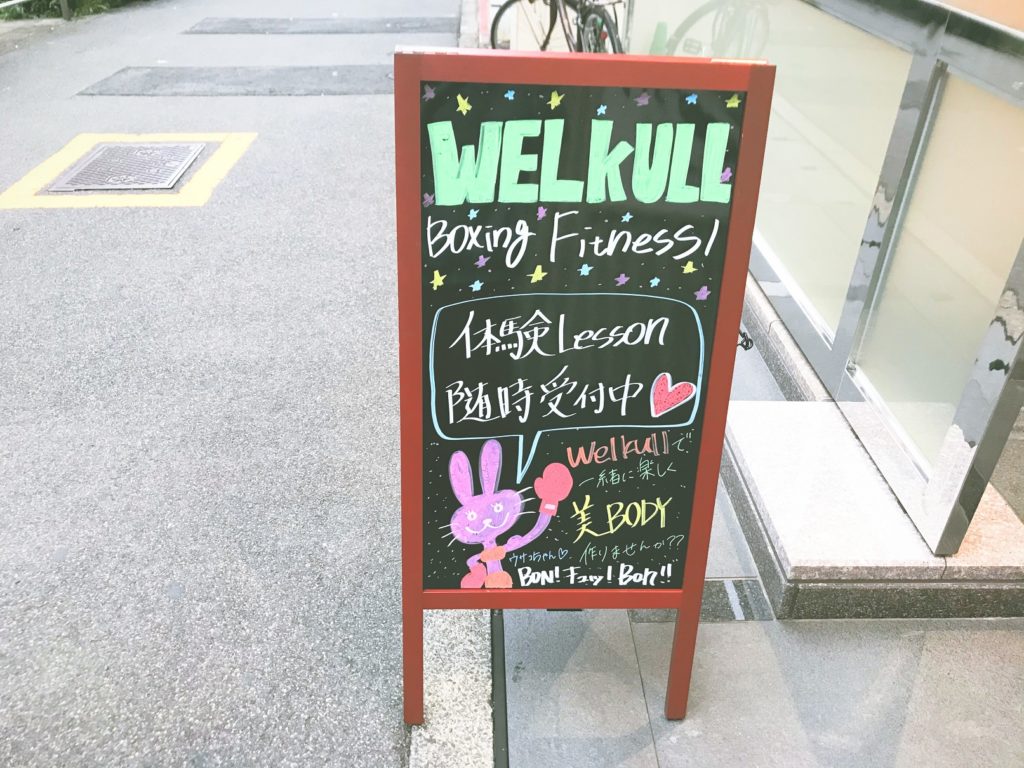 WELKULL
Boxing Fitness!
体験Lesson
随時受付中
Welkullで
一緒に楽しく
美BODY
ウサコちゃん♡
作りませんか??
BON!キュッ!Bon!!